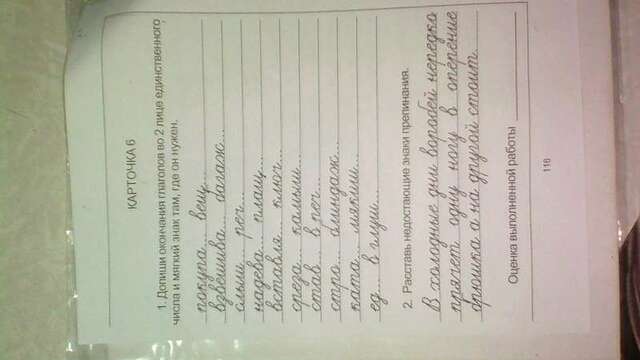 КАРТОЧКА 6
1. Допиши окончания глаголов во 2 лице единственного
числа и мягкий знак там, где он нужен.
покупа... вещ...
взвешива... багаж...
слыш... реч...
надева... плащ...
вставля... ключ...
среза... камыш...
став... в реч...
отро... блиндаж...
ката... мякиш...
ед... в глуш...
2. Расставь недостающие знаки препинания.
В холодные дни воробей нередко
прячет одну ногу в оперение
брюшка а на другой стоит.
Оценка выполненной работы
116